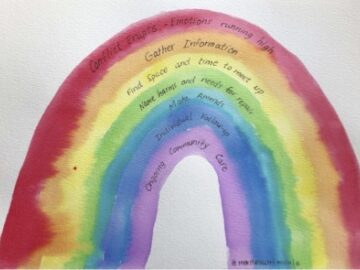 Conflict Erupts - Emotions running high
Gather Information
Find Space and time to meet up
Name harms and needs for repair
Make Amends
Individual Follow-up
Ongoing Community Care